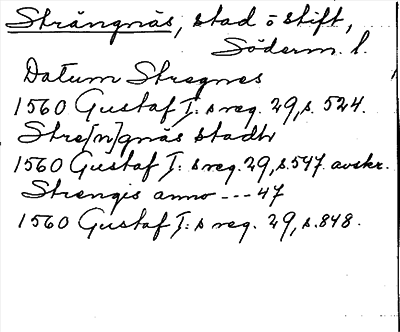 Strängnäs, stad o stift,
Söderm. l.
Datum Stregnes
1560 Gustaf I:s reg. 29, s. 524.
Stre[n]gnäs stadh
1560 Gustaf I:s reg. 29, s. 547. avskr.
Strengis anno --- 47
1560 Gustaf I:s reg. 29, s. 848.